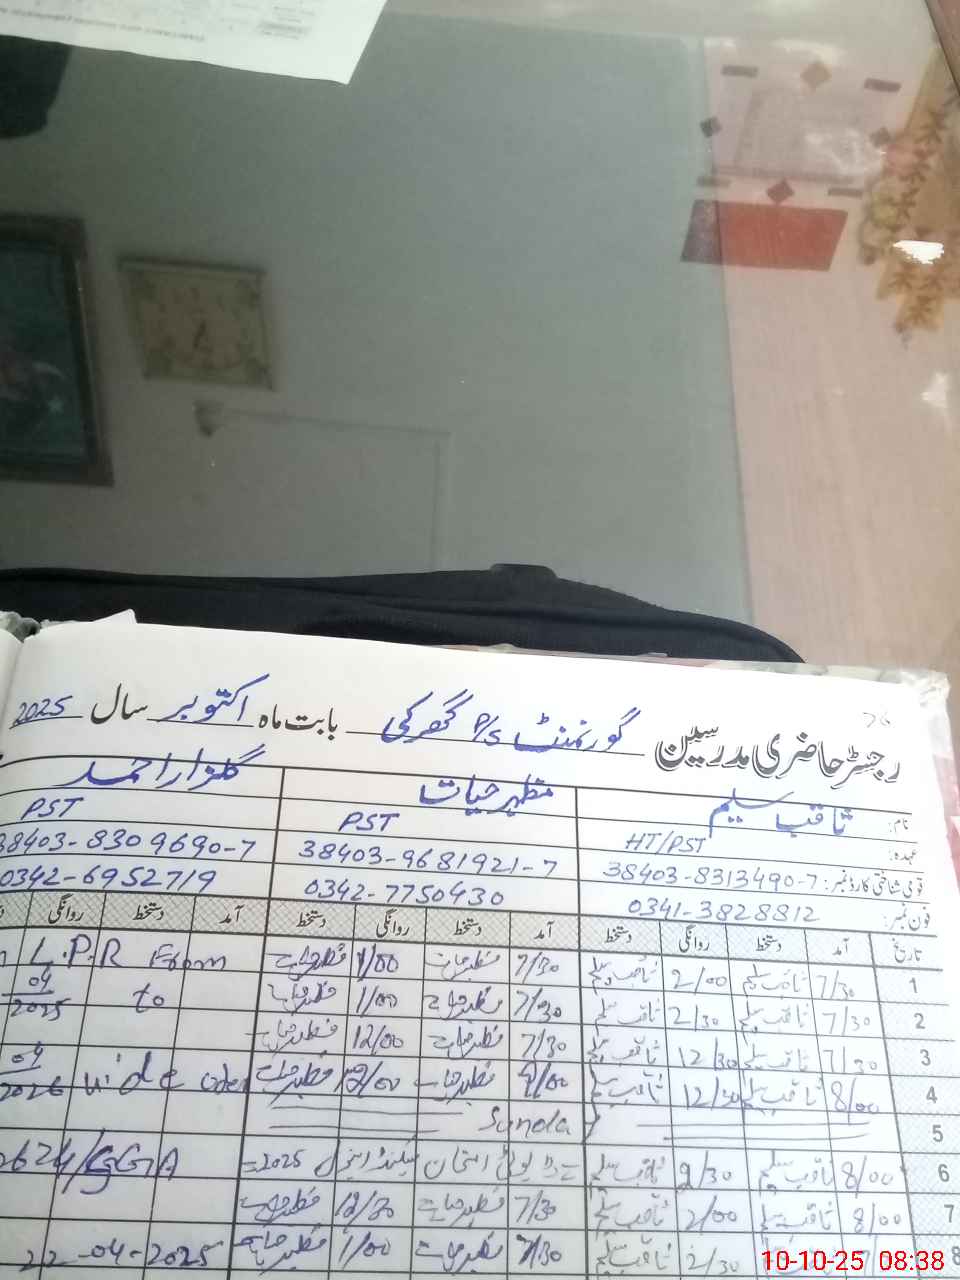 رجسٹر حاضری مدرسین گورنمنٹ P/S گھرکی بابت ماہ اکتوبر سال 2025
نام: ثاقب سلیم مظہر حیات گلزار احمد
عہدہ: HT/PST PST PST
قومی شناختی کارڈ نمبر: 38403-8313490-7 38403-9681921-7 38403-8309690-7
فون نمبر: 0341-3828812 0342-7750430 0342-6952719
تاریخ آمد دستخط روانگی دستخط آمد دستخط روانگی دستخط آمد دستخط روانگی
1 7/30 ثاقب سلیم 2/00 ثاقب سلیم 7/30 مظہر حیات 1/00 مظہر حیات L.P.R From
2 7/30 ثاقب سلیم 2/30 ثاقب سلیم 7/30 مظہر حیات 1/00 مظہر حیات to 04/2025
3 7/30 ثاقب سلیم 12/30 ثاقب سلیم 7/30 مظہر حیات 12/00 مظہر حیات
4 8/00 ثاقب سلیم 12/30 ثاقب سلیم مظہر حیات مظہر حیات vide oder 04/2026
5 Sunda
6 8/00 ثاقب سلیم 2/30 ثاقب سلیم ڈیوٹی امتحان 2025 2624/GGA
7 8/00 ثاقب سلیم 2/00 ثاقب سلیم 7/30 مظہر حیات 12/30 مظہر حیات
8 ثاقب سلیم 2/30 ثاقب سلیم 7/30 مظہر حیات 1/00 مظہر حیات 22-04-2025
10-10-25 08:38